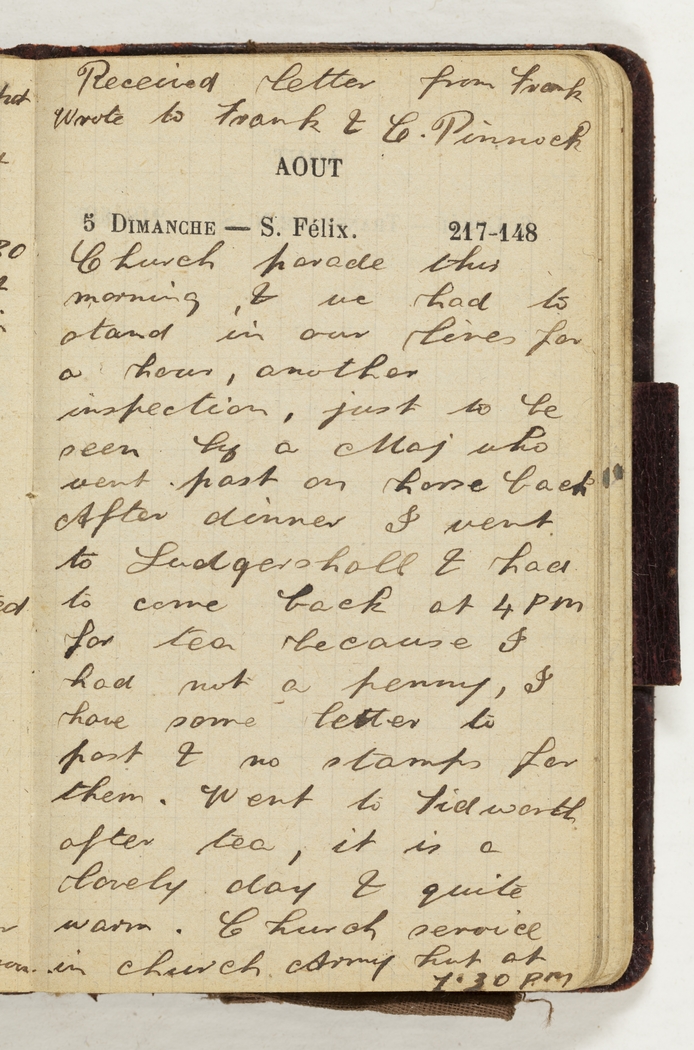 Received letter from Frank
Wrote to Frank & C. Pinnock
AOUT
5 DIMANCHE — S. Félix. 217-148
Church parade this
morning, & we had to
stand in our lines for
a hour, another
inspection, just to be
seen by a Maj who
went past on horse back
After dinner I went
to Ludgershall & had
to come back at 4 PM
for tea because I
had not a penny, I
have some letter to
post & no stamps for
them. Went to Tidworth
after tea, it is a
lovely day & quite
warm. Church service
in church Army hut at
7.30 PM